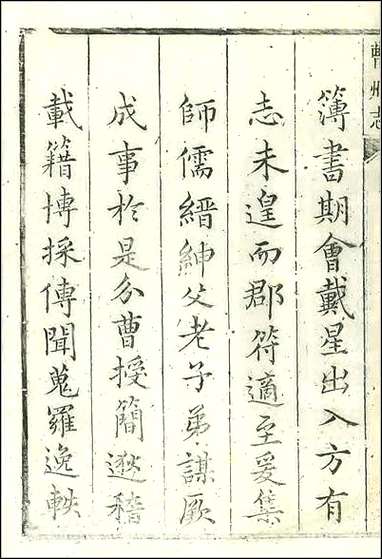 曹州志
簿書期會戴星出入方有
志未遑而郡符適至爰集
師儒縉紳父老子弟謀厥
成事於是分曹授簡遬稽
載籍博採傳聞蒐羅逸軼